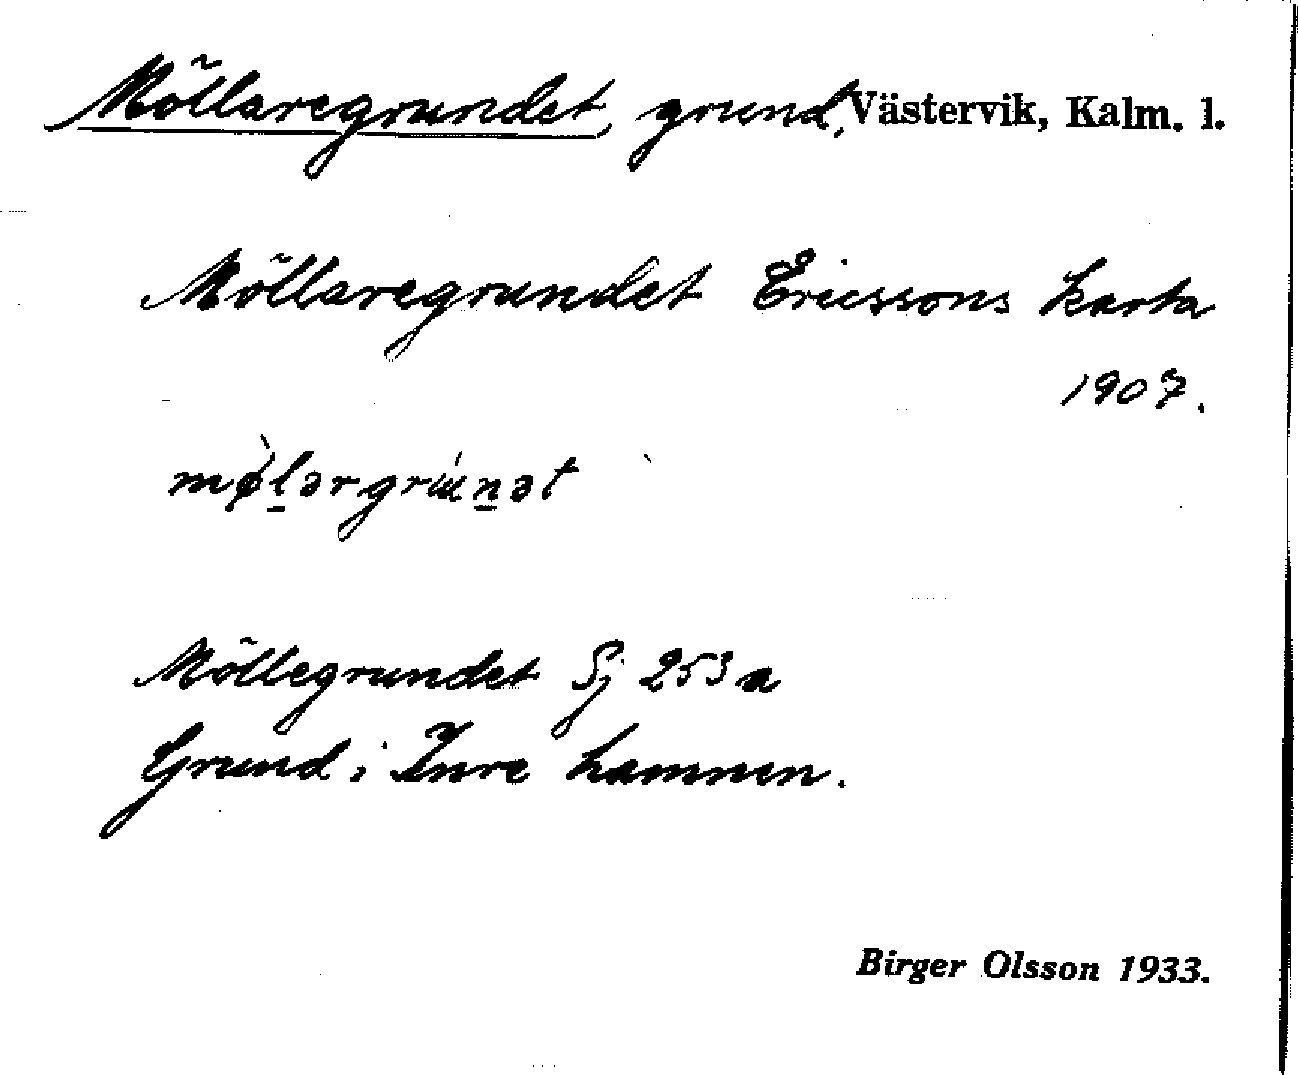 Möllaregrundet, grund, Västervik, Kalm. l.
Möllaregrundet Ericssons karta
1907.
mø̀l̠ərgrún̠ət
Möllegrundet Sj 253a
Grund i Inre hamnen.
Birger Olsson 1933.